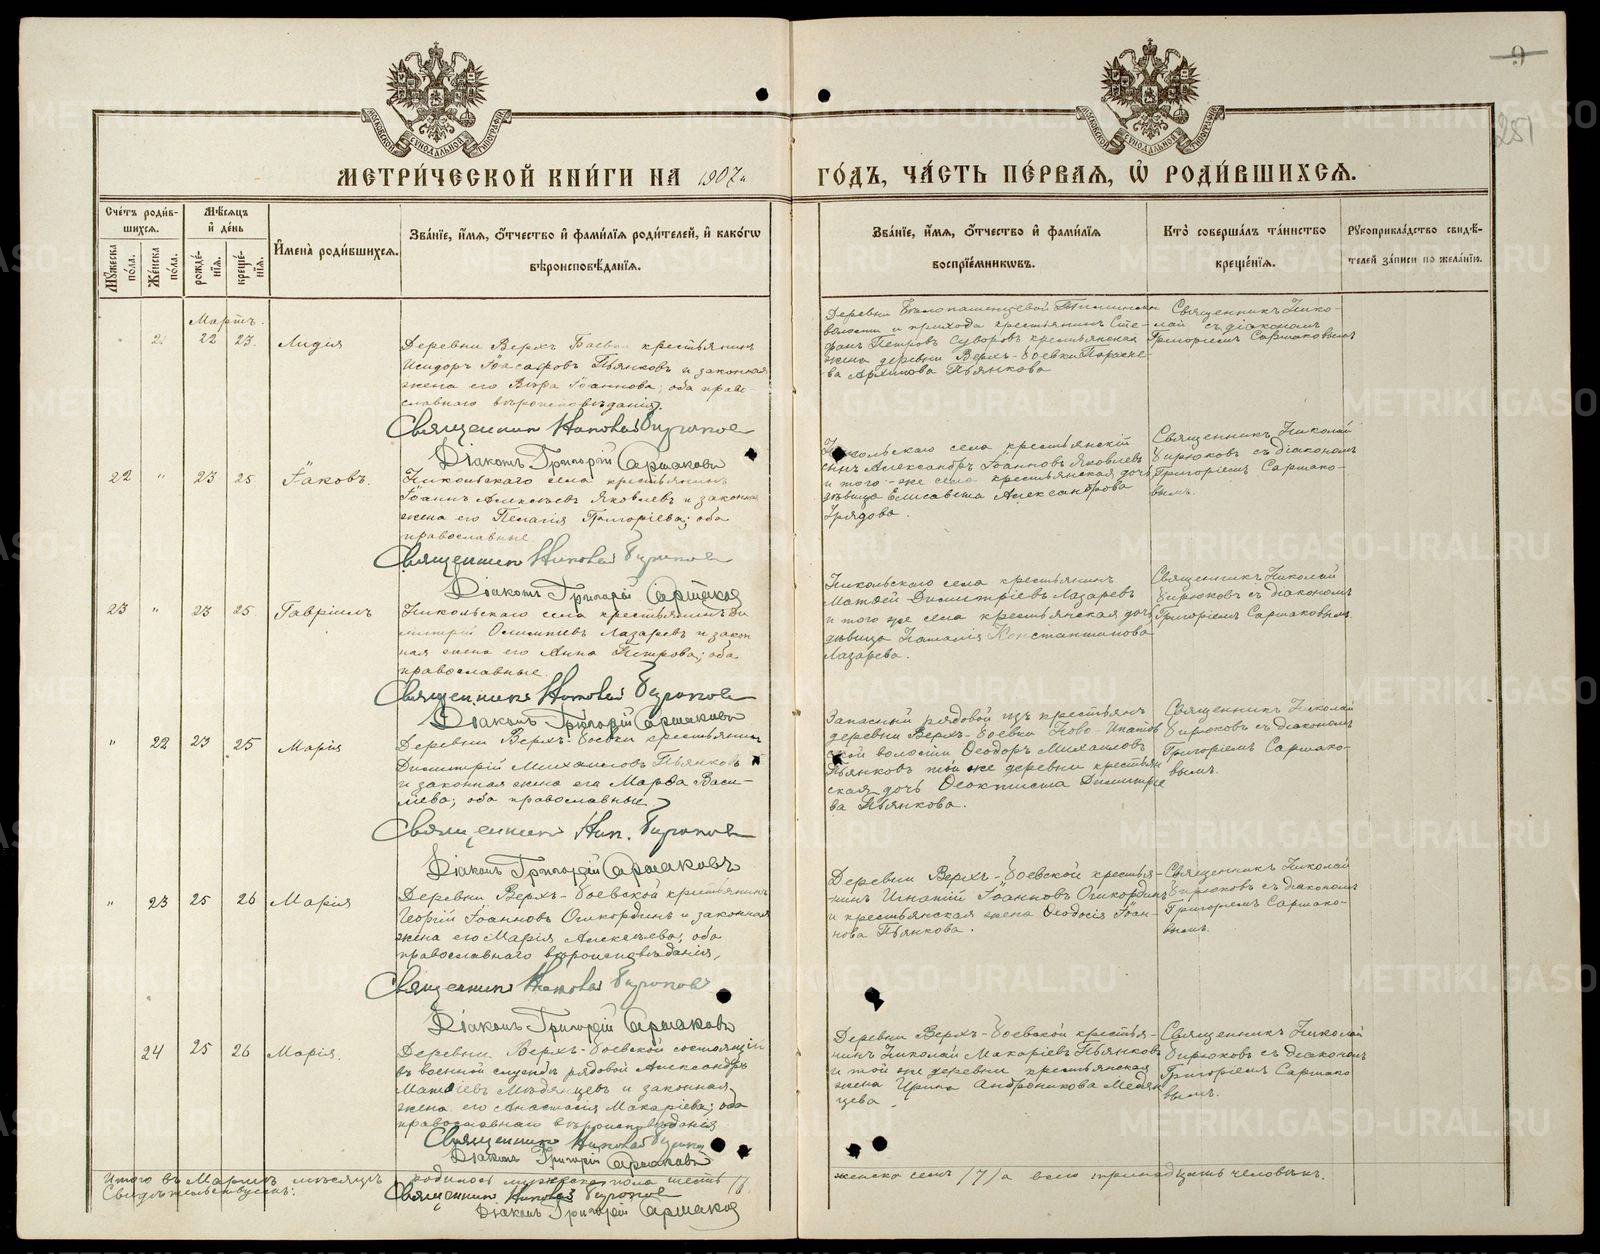 9
251
МОСКОВСКОЙ СѴНОДАЛЬНОЙ ТИПОГРАФІИ
МОСКОВСКОЙ СѴНОДАЛЬНОЙ ТИПОГРАФІИ
МЕТРИ́ЧЕСКОЙ КНИ́ГИ НА 1907й ГО́ДЪ, ЧА́СТЬ ПЕ́РВАЯ, Ѡ РОДИ́ВШИХСЯ.
Сче́тъ роди́в-
шихся.
Мѣ́сяцъ
и҆ де́нь
Мꙋ́жеска по́ла.
Же́нска по́ла.
рожде́-
нїѧ.
креще́-
нїѧ.
И҆мена̀ роди́вшихся.
Зва́нїе, и҆́мя, о҆́тчество и҆ фами́лїя роди́телей, и҆ како́гѡ
вѣроисповѣ́данїя.
Зва́нїе, и҆́мя, о҆́тчество и҆ фами́лїя
воспрїе́мникѡвъ.
Кто̀ соверша́лъ та́инство
креще́нїя.
Рꙋкоприкла́дство свидѣ́-
телей за́писи по жела́нїю.
Мартъ.
22 23. Лидія
Деревни Верхъ Боевки крестьянинъ
Исидоръ Іоасафовъ Пьянковъ и законная
жена его Вѣра Іоаннова; оба право-
славнаго вѣроисповѣданія.
Священникъ Николай Бирюковъ
Діаконъ Григорій Саршаковъ
волости и прихода крестьянинъ Сте-
фанъ Петровъ Суворовъ крестьянская
жена деревни Верхъ-Боевки Параске-
ва Архипова Пьянкова
Священникъ Нико-
лай съ діакономъ
Григоріемъ Саршаковымъ
22 " 23 25 Іаковъ.
Никольскаго села крестьянинъ
Іоаннъ Алексѣевъ Яковлевъ и законная
жена его Пелагія Григоріева; оба
православные
Священникъ Николай Бирюковъ
Діаконъ Григорій Саршаковъ
Никольскаго села крестьянскій
сынъ Александръ Іоанновъ Яковлевъ
и того-же села крестьянская дочь
дѣвица Елисавета Александрова
Священникъ Николай
Бирюковъ съ діакономъ
Григоріемъ Саршако-
вымъ.
23 " 23 25 Гавріилъ
Никольскаго села крестьянинъ Ди
митрій Лазаревъ и закон
ная жена его Анна Петрова; оба
православные
Священникъ Николай Бирюковъ
Діаконъ Григорій Саршаковъ
Никольскаго села крестьянинъ
Матѳей Димитріевъ Лазаревъ
и того же села крестьянская дочь
дѣвица Наталія Константинова
Лазарева.
Священникъ Николай
Бирюковъ съ діакономъ
Григоріемъ Саршаковымъ.
" 22 23 25 Марія
Деревни Верхъ-Боевки крестьянинъ
Димитрій Михаиловъ Пьянковъ
и законная жена его Марѳа Васи-
лиева; оба православные
Священникъ Ник. Бирюковъ
Діаконъ Григорій Саршаковъ
Запасный рядовой изъ крестьянъ
деревни Верхъ-Боевки Ново-Ипатов
ской волости Ѳеодоръ Михаиловъ
Пьянковъ той же деревни крестьян
ская дочь Ѳеоктиста Димитріе
ва Пьянкова.
Священникъ Николай
Бирюковъ съ діакономъ
Григоріемъ Саршако-
вымъ.
" 23 25 26 Марія
Деревни Верхъ-Боевской крестьянинъ
Георгій Іоанновъ и законная
жена его Марія Алексѣева; оба
православнаго вѣроисповѣданія,
Священникъ Николай Бирюковъ
Діаконъ Григорій Саршаковъ
Деревни Верхъ-Боевской крестья-
нинъ Игнатій Іоанновъ
и крестьянская жена Ѳеодосія Іоан-
нова Пьянкова.
Священникъ Николай
Бирюковъ съ діакономъ
Григоріемъ Саршако-
вымъ.
24 25 26 Марія.
Деревни Верхъ-Боевской состоящій
въ военной службѣ рядовой Александръ
Матѳіевъ Медянцевъ и законная
жена его Анастасія Макаріева; оба
православнаго вѣроисповѣданія
Священникъ Николай Бирюковъ
Діаконъ Григорій Саршаковъ
Деревни Верхъ-Боевской крестья-
нинъ Николай Макаріевъ Пьянковъ
и той же деревни крестьянская
жена Ирина Андроникова Медян
цева
Священникъ Николай
Бирюковъ съ діакономъ
Григоріемъ Саршако
вымъ.
Итого въ Мартѣ мѣсяцѣ родилось мужеска пола шесть /6
женска семь /7/ а всего тринадцать человѣкъ.
Свидѣтельствуемъ: Священникъ Николай Бирюковъ
Діаконъ Григорій Саршаковъ
METRIKI.GASO-URAL.RU